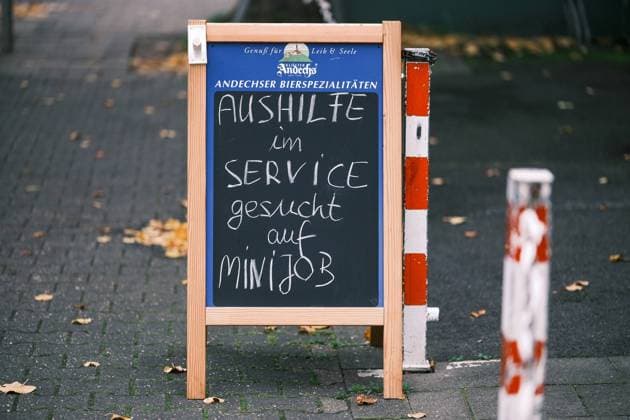 Genuß für Leib & Seele
Andechs
ANDECHSER BIERSPEZIALITÄTEN
AUSHILFE
im
SERVICE
gesucht
auf
MINIJOB